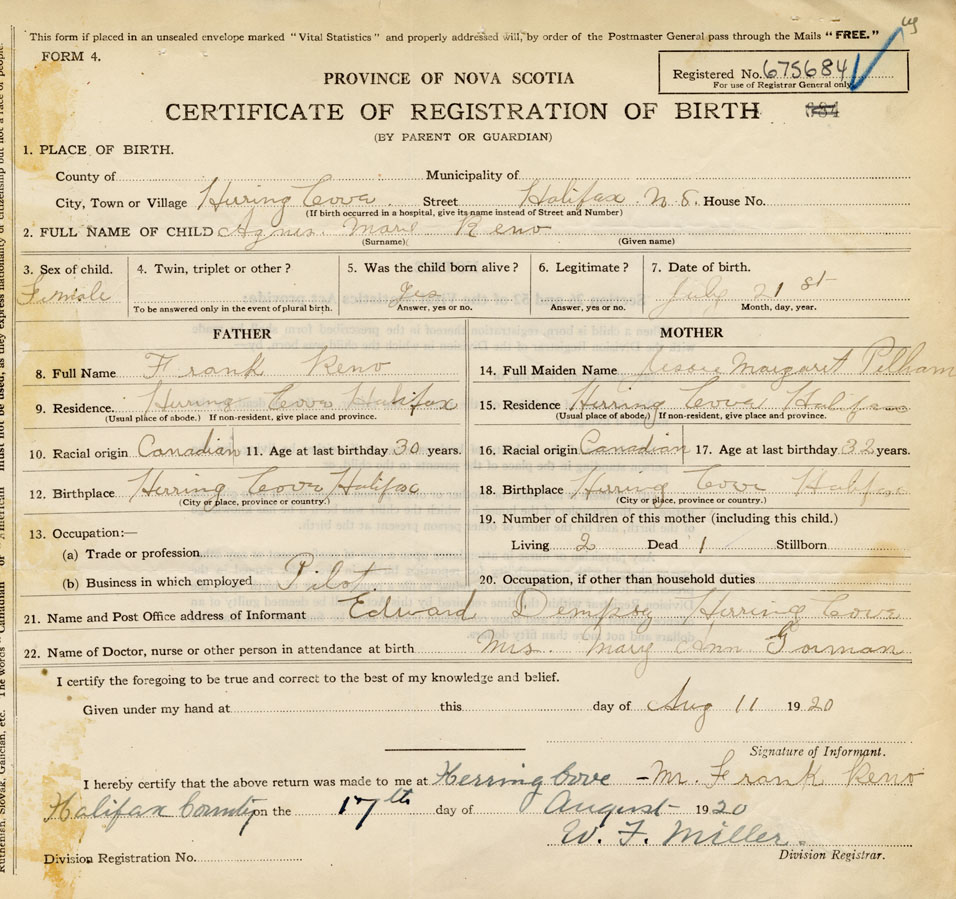 This form if placed in an unsealed envelope marked "Vital Statistics" and properly addressed will, by order of the Postmaster General pass through the Mails "FREE."
FORM 4.
PROVINCE OF NOVA SCOTIA
Registered No. 675684
For use of Registrar General only.
CERTIFICATE OF REGISTRATION OF BIRTH
(BY PARENT OR GUARDIAN)
1. PLACE OF BIRTH.
County of Municipality of
City, Town or Village Herring Cove Street Halifax N.S. House No.
(If birth occurred in a hospital, give its name instead of Street and Number)
2. FULL NAME OF CHILD Agnes Marie Reno
(Surname) (Given name)
3. Sex of child. 4. Twin, triplet or other? 5. Was the child born alive? 6. Legitimate? 7. Date of birth.
Female yes July 21 st
To be answered only in the event of plural birth. Answer, yes or no. Answer, yes or no. Month, day, year.
FATHER MOTHER
8. Full Name Frank Reno 14. Full Maiden Name Jessie Margaret Pelham
9. Residence. Herring Cove Halifax 15. Residence Herring Cove Halifax
(Usual place of abode.) If non-resident, give place and province. (Usual place of abode.) If non-resident, give place and province.
10. Racial origin Canadian 11. Age at last birthday 30 years. 16. Racial origin Canadian 17. Age at last birthday 32 years.
12. Birthplace Herring Cove Halifax 18. Birthplace Herring Cove Halifax
(City or place, province or country.) (City or place, province or country.)
13. Occupation:— 19. Number of children of this mother (including this child.)
(a) Trade or profession Living 2 Dead 1 Stillborn
(b) Business in which employed Pilot 20. Occupation, if other than household duties
21. Name and Post Office address of Informant Edward Dempsey Herring Cove
22. Name of Doctor, nurse or other person in attendance at birth Mrs. Mary Ann Gorman
I certify the foregoing to be true and correct to the best of my knowledge and belief.
Given under my hand at this day of Aug 11 1920
Signature of Informant.
I hereby certify that the above return was made to me at Herring Cove - Mr. Frank Reno
Halifax County on the 17th day of August 1920
W. F. Miller.
Division Registration No. Division Registrar.